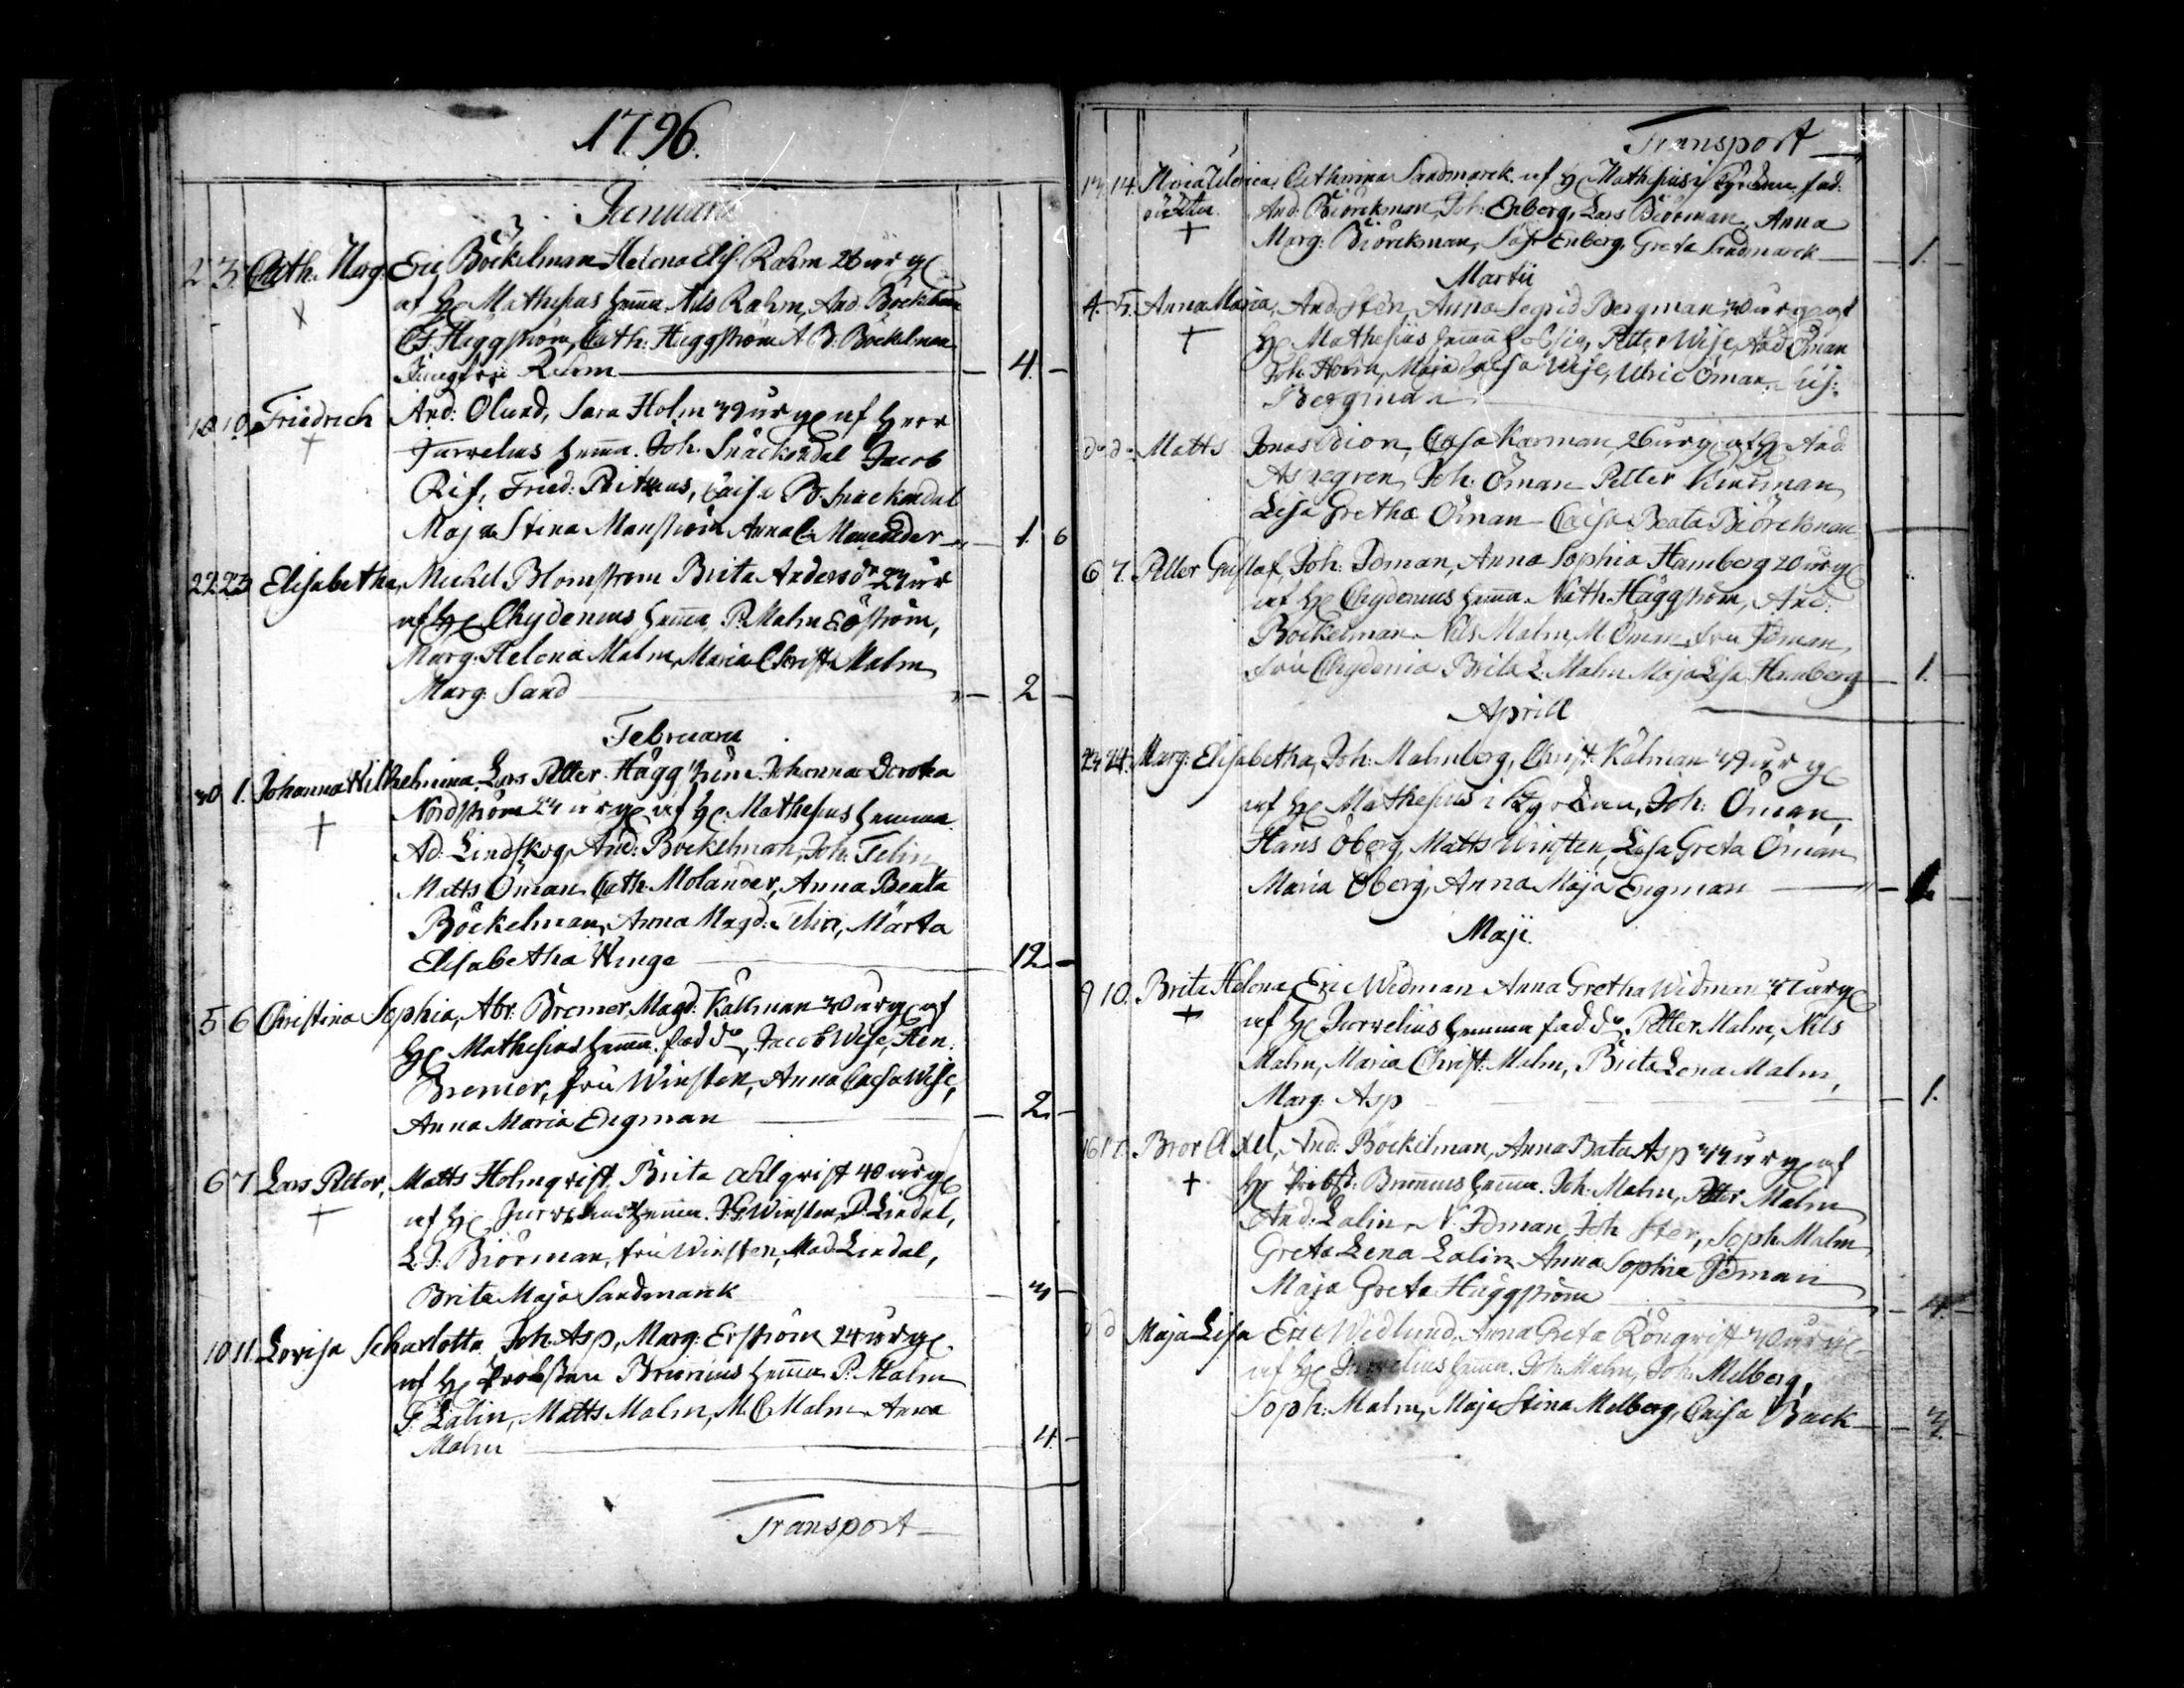 1796.
Januarii
2 3 Cath. Marg: Eric Böckelman Helena Elis. Rahm 26 år gl
af H Mathesius hemma Nils Rahm, And. Böckelman
Häggström, Cath: Häggström A B: Böckelman
Rahm — 4. —
10 10 Friedrich And: Olund, Sara Holm 39 år gl af Herr
Jurvelius hemma. Joh. Snäckendal Jacob
Rif, Fried: Caisa B. Snackendal
Maja Stina Manström Anna C. — 1. 6
22 23 Elisabetha, Michel Blomström Brita Andersdr 23 år
af H Chydenius hemma P. Malm
Marg: Helena Malm, Maria Christ. Malm
Marg: Sand — 2 —
Februarii
30 1. Johanna Wilhelmina, Lars Petter Häggström Johanna Dorotea
Nordström 23 år gl af H Mathesius hemma
Ad: Lindskog, And: Böckelman, Joh: Telin
Matts Öman Cath. Molander, Anna Beata
Böckelman, Anna Magd: Telin, Märta
Elisabetha Winge — 12 —
5 6 Christina Sophia, Abr: Bremer, Magd: Källman 30 år gl af
H Mathesius hemma. fad do, Jacob Wise, Hen:
Bremer, fru Winsten, Anna Caisa Wise,
Anna Maria Engman — 2 —
6 7 Lars Petter, Matts Holmqvist, Brita Ahlqvist 40 år gl
af H Jurvelius hemma. J. G. Winsten, P. Lindal,
L. J: Biörman, fru Winsten, Mad Lindal,
Brita Maja Sandmark — 3 —
10 11. Lovisa Scharlotta Joh: Asp, Marg: Erström 24 år gl
af H Probsten Brunnius hemma P. Malm
G: Lalin, Matts Malm, M. C. Malm Anna
Malm — 4. —
Transport —
Transport —
13 14. Maria Ulrica, Catharina Sandmarck af H Mathesius i kyrckan, fad:
oäckta And: Biörckman, Joh: Enberg, Lars Biörman, Anna
Marg: Biörckman, Enberg, Greta Sandmarck — 1.
Martii
4. 5. Anna Maria, And. Sten, Anna Segrid Bergman, 30 år gl af
H Mathesius hemma Petter Wise, And Öman
Joh. Holm, Maja Caisa Wise, Ulric Öman,
Bergman
do do Matts Jonas Caisa Karman, 26 år gl af H And.
Aspegren, Joh: Öman Petter
Lisa Gretha Öman Caisa Beata Biörckman
6 7. Petter Gustaf, Joh: Idman, Anna Sophia Hamberg 20 år gl
af H Chydenius hemma. Nath. Häggström, And:
Böckelman Nils Malm, M. Öman, fru Idman,
fru Chydenia Brita L: Malm Maja Lisa Hamberg — 1. —
Aprill
23 24. Marg: Elisabetha, Joh: Malmberg, Christ. Kålman 39 år gl
af H Mathesius i kyrckan, Joh: Öman,
Hans Öberg, Matts Winsten, Lisa Greta Öman
Maria Öberg, Anna Maja Engman
Maji.
9 10. Brita Helena Eric Widman Anna Gretha Widman 37 år gl
af H Jurvelius hemma fad. do Petter Malm, Nils
Malm, Maria Christ: Malm, Brita Lena Malm,
Marg: Asp — 1.
16 17. Bror Axel, And: Böckelman, Anna Bata Asp 33 år gl af
Hr Probst: Brunnius hemma. Joh: Malm, Petter Malm
And: Lalin N. Idman, Joh Sten, Soph: Malm
Greta Lena Lalin Anna Sophia Idman
Maja Greta Häggström — 4. —
d d Maja Lisa Eric Widlund, Anna Greta Rönqvist 30 år gl
af H Jurvelius hemma. Joh: Malm, Joh: Melberg,
Soph: Malm, Maja Stina Melberg, Caisa Back — 3.